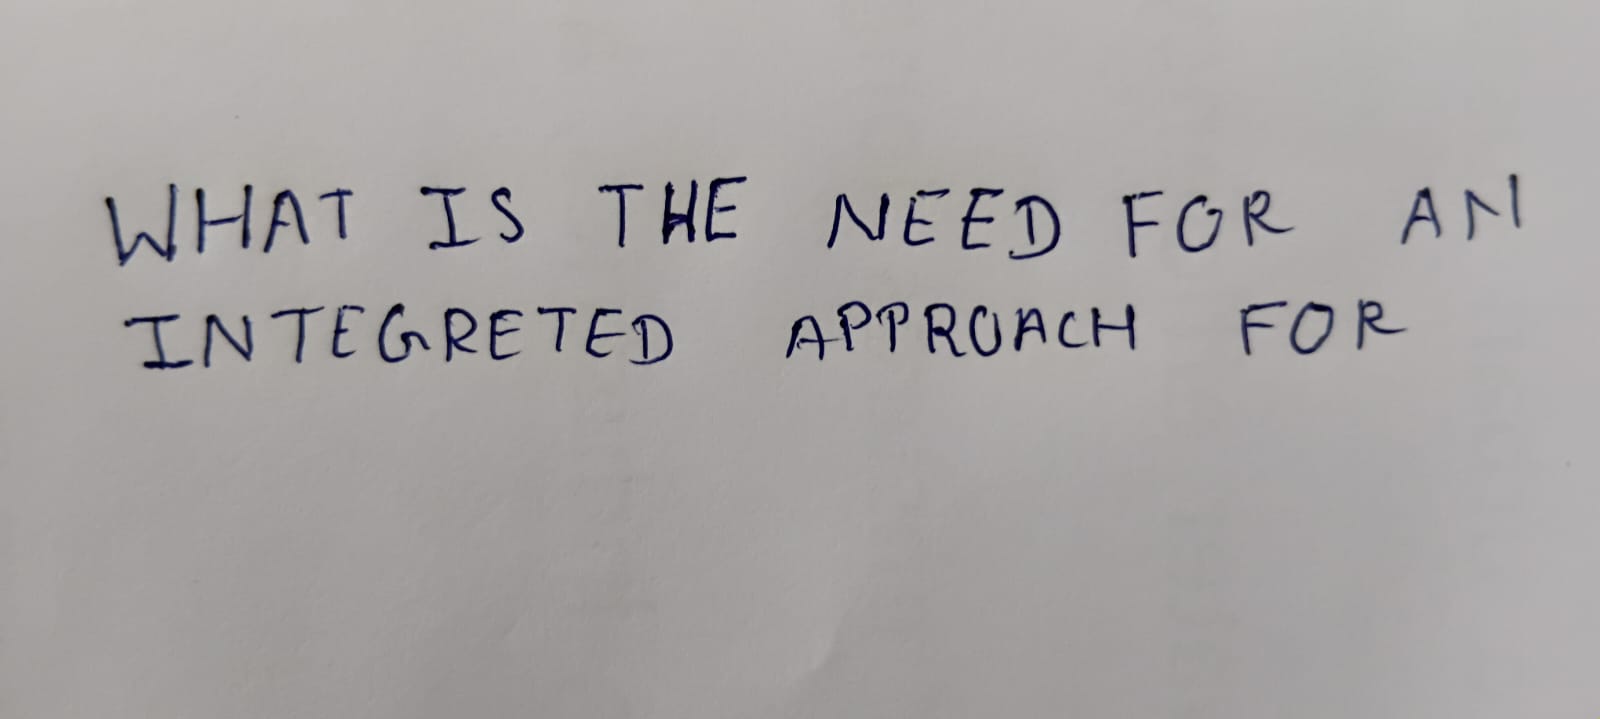 WHAT IS THE NEED FOR AN
INTEGRETED APPROACH FOR